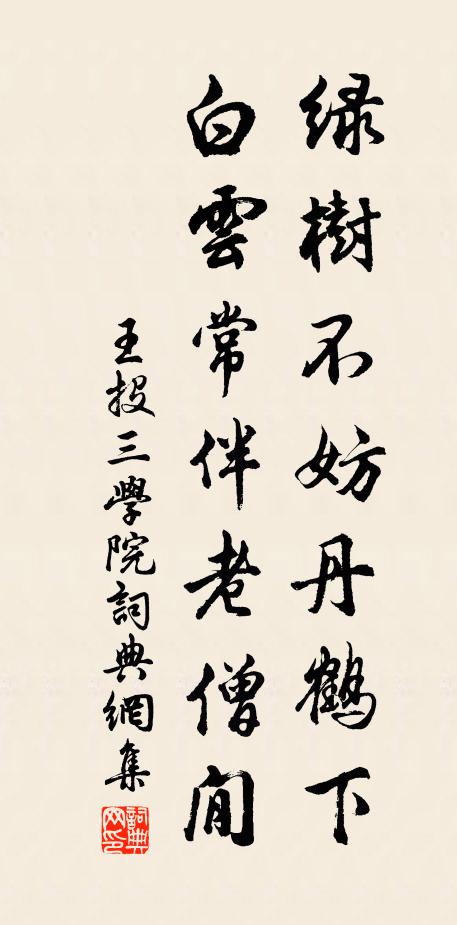 綠樹不妨丹鶴下
白雲常伴老僧閒
王投三學院詞典網集
詞典網印